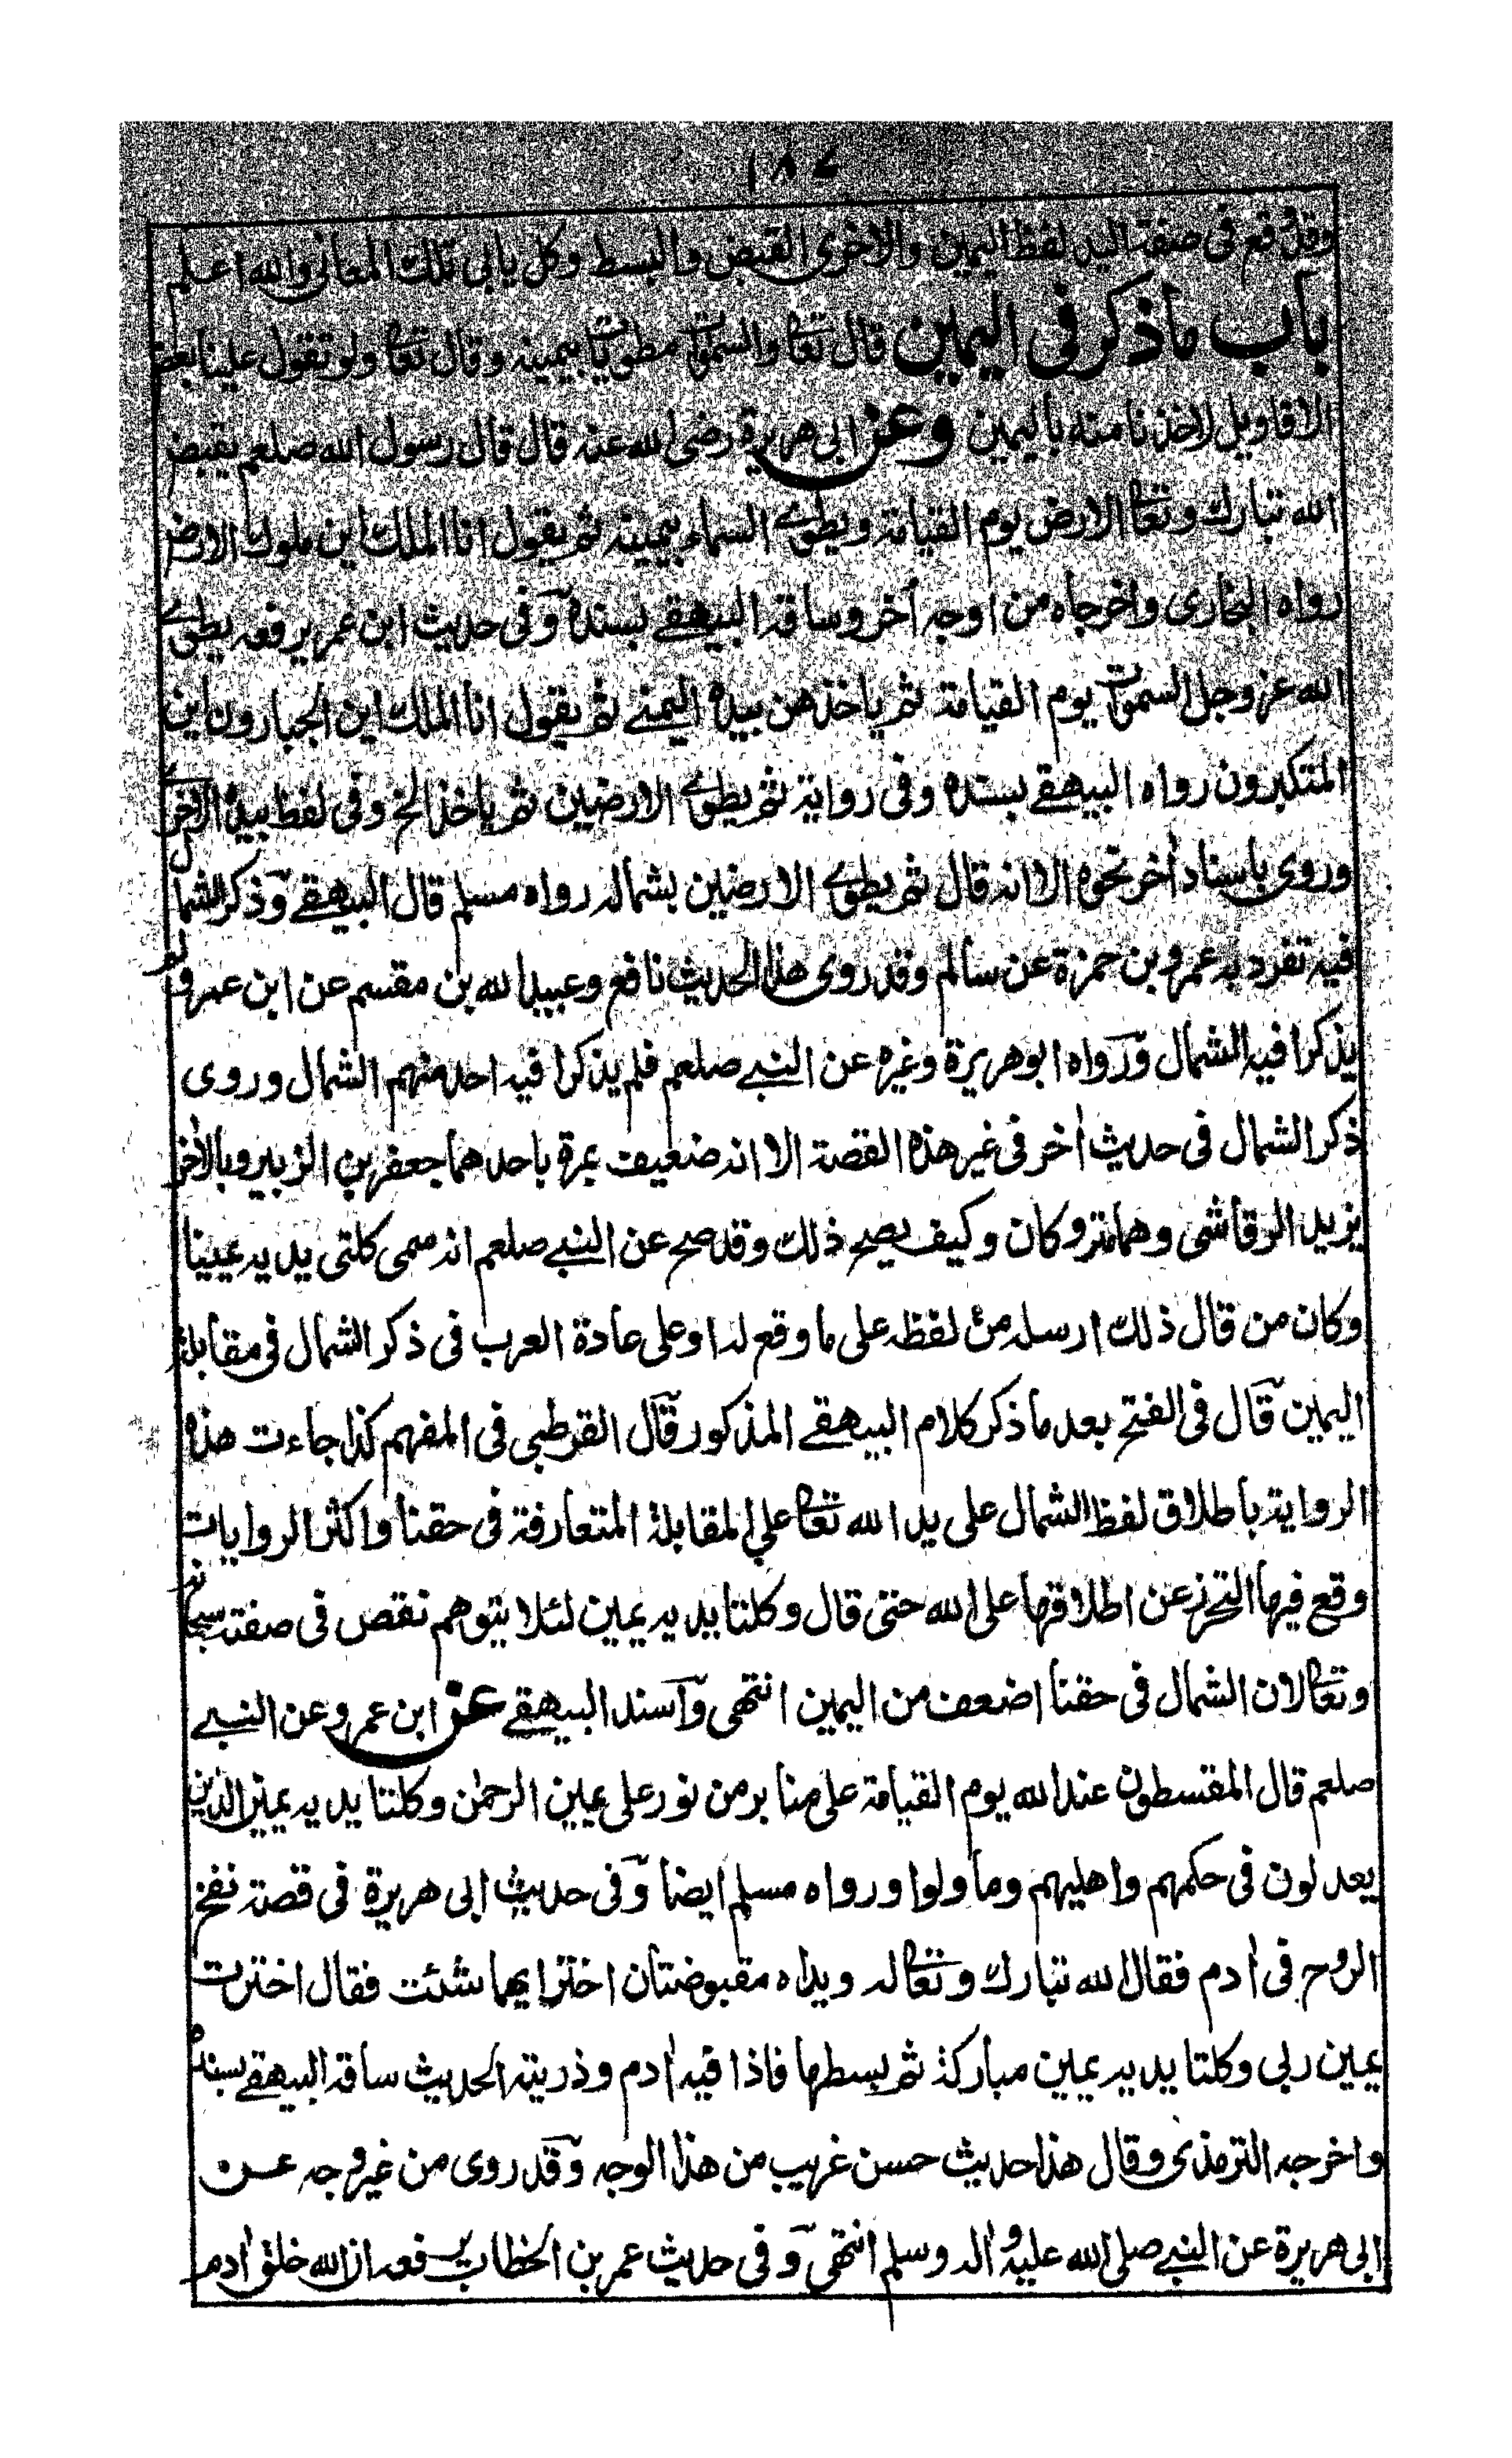 ١٨٤
وقد وقع فى صفة اليد لفظ اليمين والاخرى القبض والبسط وكل يابى تلك المعانى والله اعلم
باب ماذكر فى اليمين قال تعا والسموٰت مطويٰت بيمينه وقال تعا ولو تقول علينا بعض
الاقاويل لاخذنا منه باليمين وعن ابى هريرة رضى الله عنه قال قال رسول الله صلعم يقبض
الله تبارك وتعا الارض يوم القيامة ويطوے السماء بيمينه ثم يقول انا الملك اين ملوك الارض
رواه البخارى واخرجاه من اوجه اٰخر وساقه البيهقے بسنده وفى حديث ابن عمر يرفعه يطوے
الله عز وجل السموٰت يوم القيامة ثم ياخذهن بيده اليمنے ثم يقول انا الملك اين الجبارون اين
المتكبرون رواه البيهقے بسنده وفى رواية ثم يطوے الارضين ثم ياخذ الخ وفى لفظ بيده الاخرے
وروى باسناد اٰخر نحوه الا انه قال ثم يطوے الارضين بشماله رواه مسلم قال البيهقے وذكر الشمال
فيه تفرد به عمرو بن حمزة عن سالم وقد روى هذا الحديث نافع وعبيد الله بن مقسم عن ابن عمر ولم
يذكرا فيه الشمال ورواه ابو هريرة وغيره عن النبے صلعم فلم يذكرا فيه احد منهم الشمال وروى
ذكر الشمال فى حديث اٰخر فى غير هذه القصة الا انه ضعيف بمرة باحدهما جعفر بن الزبير وبالاٰخر
يزيد الرقاشى وهما متروكان وكيف يصح ذلك وقد صح عن النبے صلعم انه سمى كلتى يديه يمينا
وكان من قال ذلك ارسله من لفظه على ما وقع له او على عادة العرب فى ذكر الشمال فى مقابلة
اليمين قال فى الفتح بعد ما ذكر كلام البيهقے المذكور قال القرطبى فى المفهم كذا جاءت هذه
الرواية باطلاق لفظ الشمال على يد الله تعا على المقابلة المتعارفة فى حقنا واكثر الروايات
وقع فيها التحرز عن اطلاقها على الله حتى قال وكلتا يديه يمين لئلا يتوهم نقص فى صفته سبحانه
وتعا لان الشمال فى حقنا اضعف من اليمين انتهى واسند البيهقے عن ابن عمرو عن النبے
صلعم قال المقسطون عند الله يوم القيامة على منابر من نور على يمين الرحمٰن وكلتا يديه يمين الذين
يعدلون فى حكمهم واهليهم وما ولوا ورواه مسلم ايضا وفى حديث ابى هريرة فى قصة نفخ
الروح فى اٰدم فقال الله تبارك وتعا له ويداه مقبوضتان اختر ايهما شئت فقال اخترت
يمين ربى وكلتا يديه يمين مباركة ثم بسطها فاذا فيه اٰدم وذريته الحديث ساقه البيهقے بسنده
واخرجه الترمذى وقال هذا حديث حسن غريب من هذا الوجه وقد روى من غير وجه عن
ابى هريرة عن النبے صلى الله عليه واٰله وسلم انتهى وفى حديث عمر بن الخطاب يرفعه ان الله خلق اٰدم